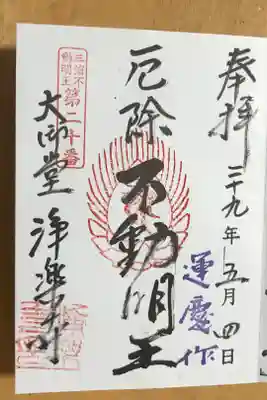 奉拝
二十九年五月四日
運慶作
厄除不動明王
第二十番
大師堂 浄楽寺